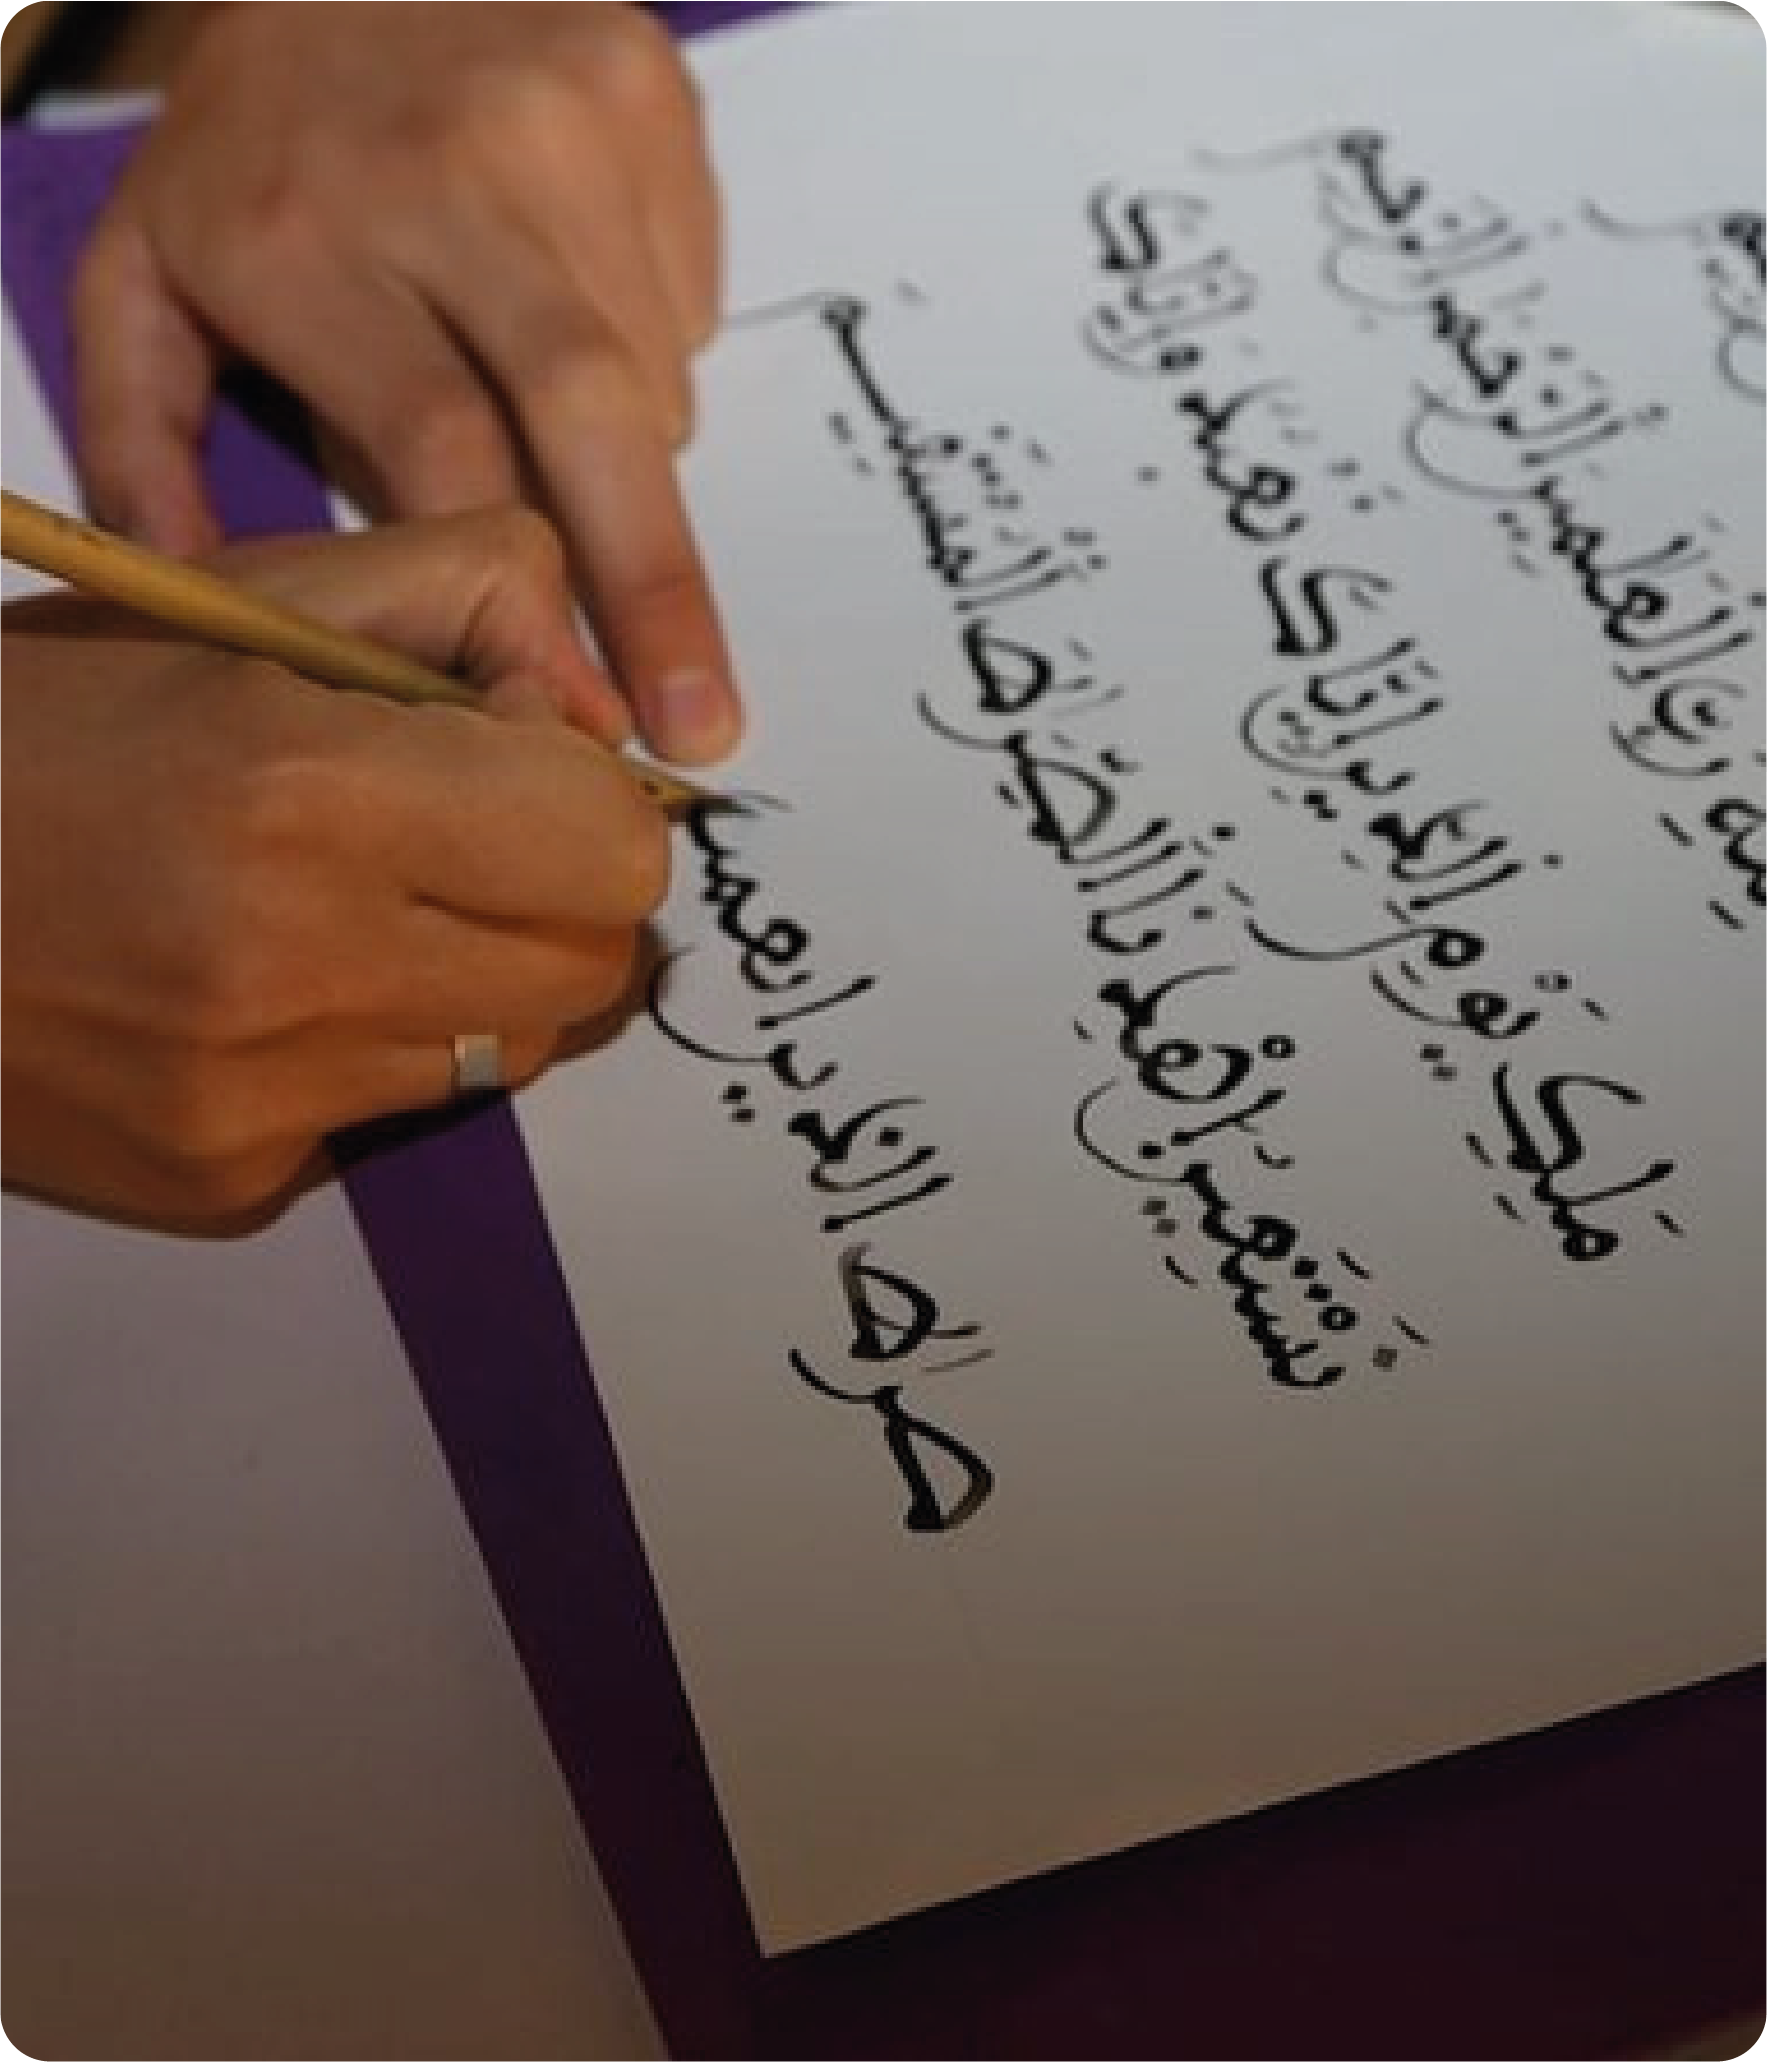 لله رب العلمين الرحمن الرحيم
مَلِكِ يَوْمِ الدين اياك نعبد واياك
نَسْتَعِين اهْدِنا الصراط المستقيم
صراط الذين انعمت